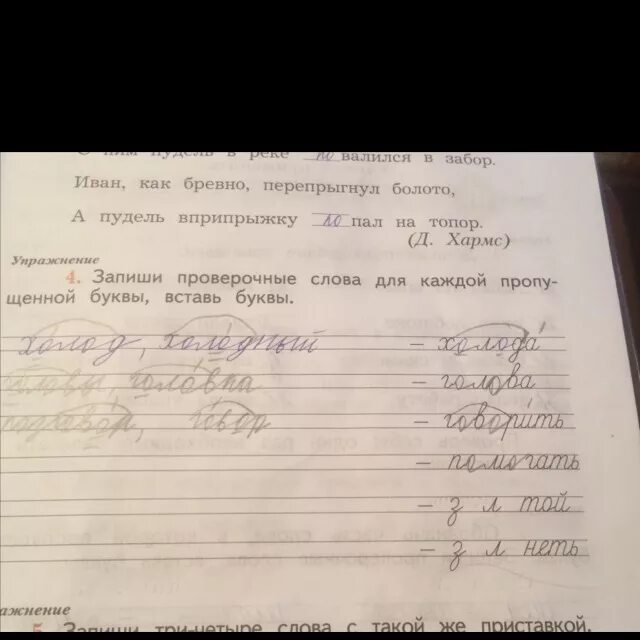 С ним пудель в реке по валился в забор.
Иван, как бревно, перепрыгнул болото,
А пудель вприпрыжку по пал на топор.
(Д. Хармс)
Упражнение
4. Запиши проверочные слова для каждой пропу-
щенной буквы, вставь буквы.
холод, холодный – холода
головы, головка – голова
разговор, говор – говорить
– помогать
– з л той
– з л неть
ажнение
5. Запиши три-четыре слова с такой же приставкой.